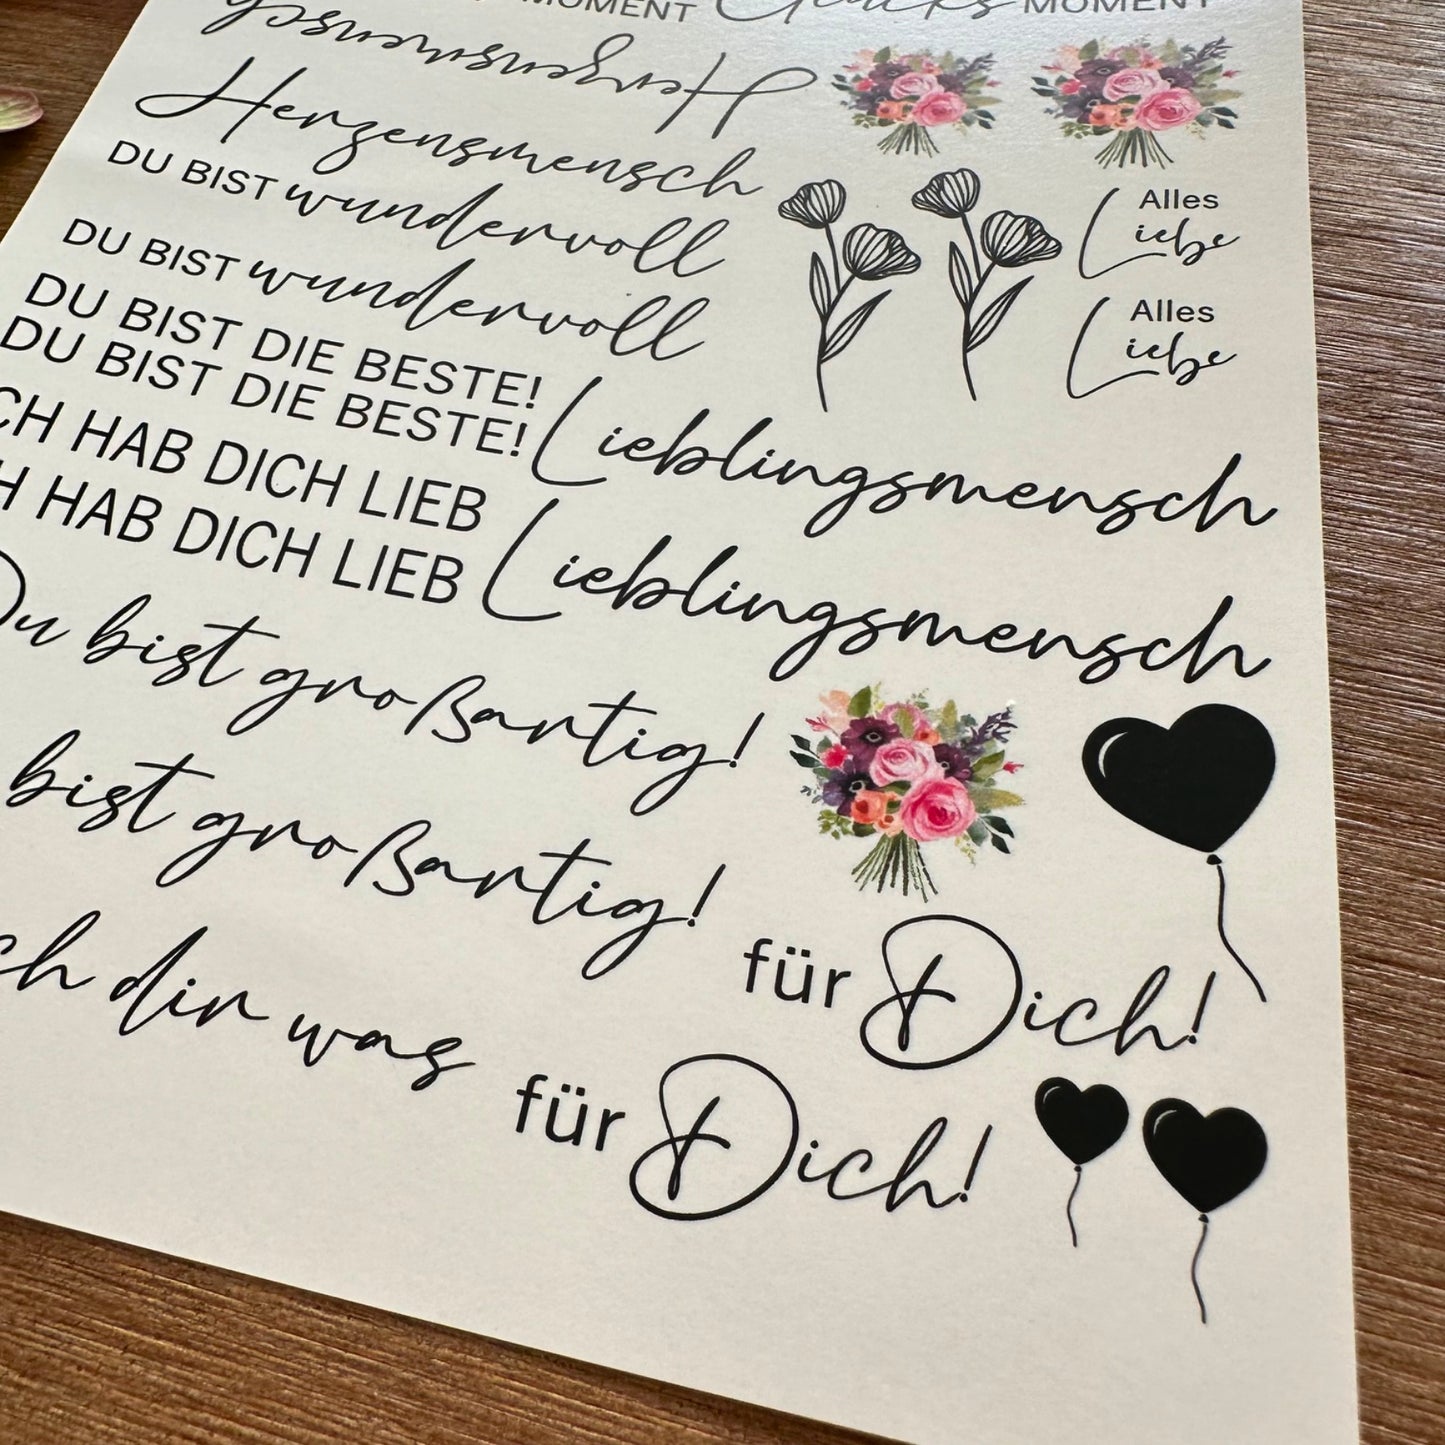 MOMENT Glücks MOMENT
Herzensmensch
Herzensmensch
DU BIST wundervoll
Alles
Liebe
DU BIST wundervoll
Alles
Liebe
DU BIST DIE BESTE!
DU BIST DIE BESTE!
Lieblingsmensch
CH HAB DICH LIEB
H HAB DICH LIEB
Lieblingsmensch
Du bist großartig!
bist großartig!
für Dich!
ch dir was
für Dich!